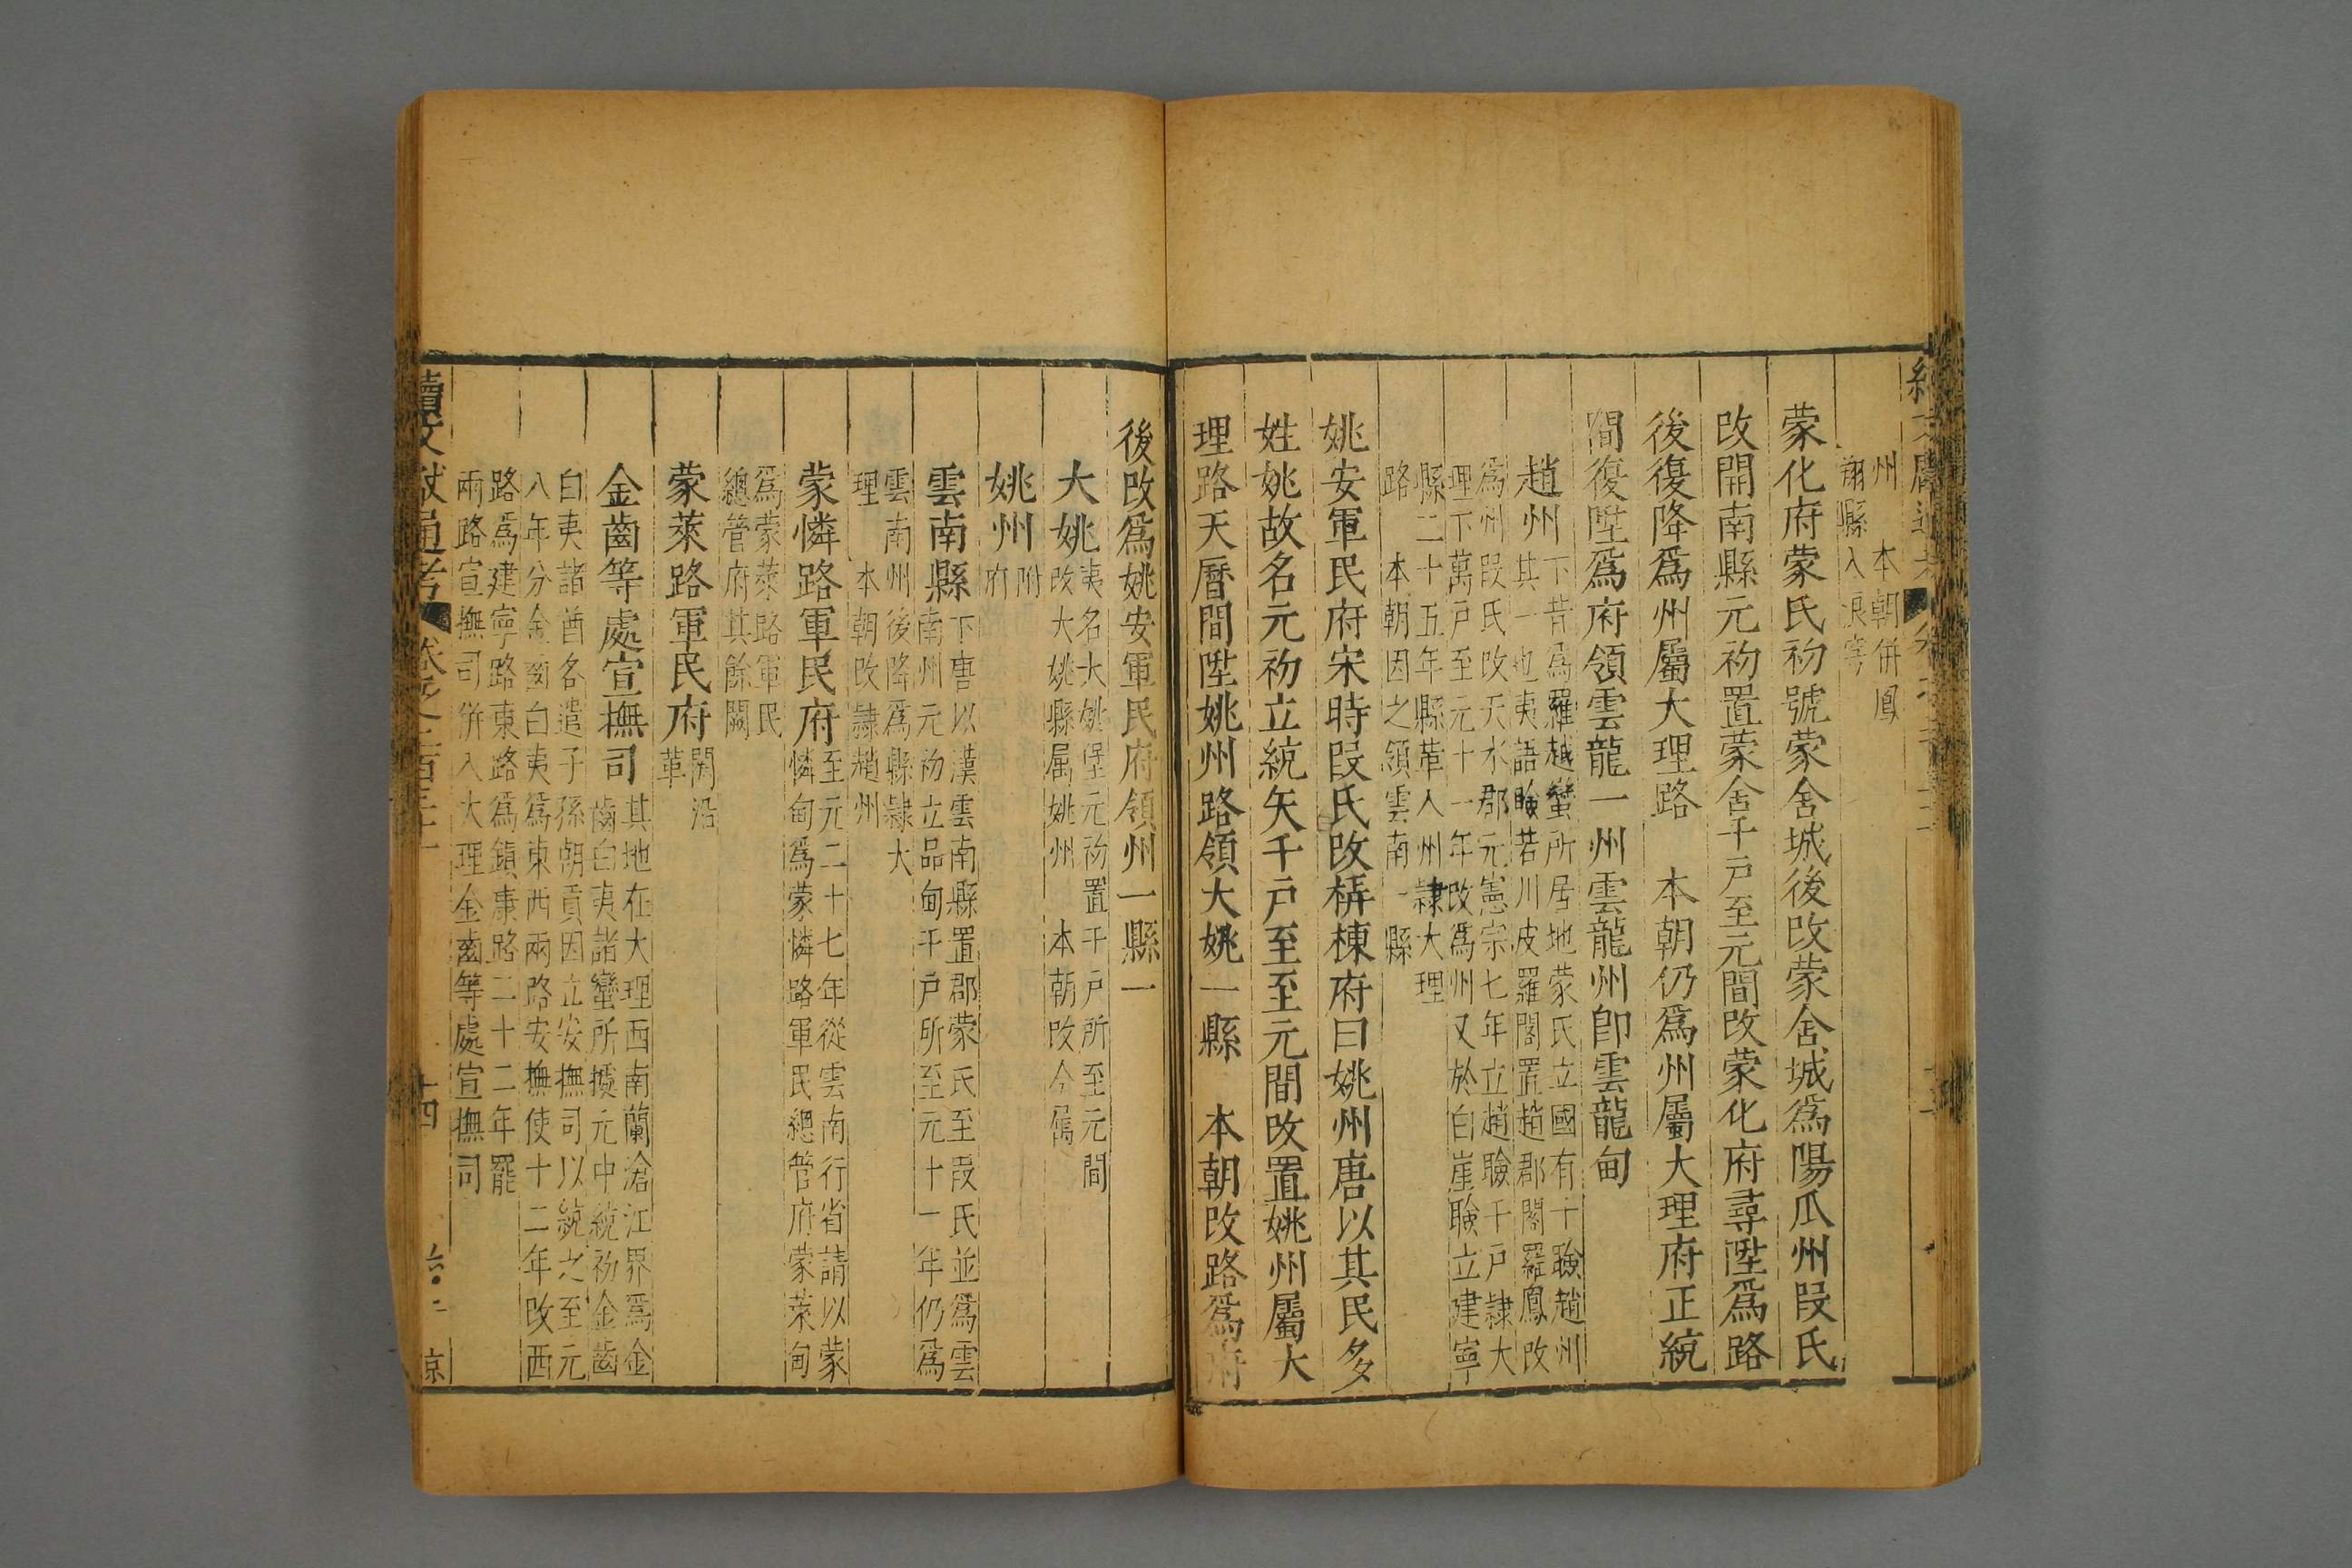 州　本朝併鳳
翔縣入浪穹
蒙化府蒙氏初號蒙舍城後改蒙舍城爲陽瓜州段氏
改開南縣元初置蒙舍千戶至元間改蒙化府尋陞爲路
後復降爲州屬大理路　本朝仍爲州屬大理府正統
間復陞爲府領雲龍一州雲龍州卽雲龍甸
趙州
下昔爲羅越蠻所居地蒙氏立國有十瞼趙州
其一也夷語瞼若川皮羅閣置趙郡閣羅鳳改
爲州段氏改天水郡元憲宗七年立趙瞼千戶隷大
理下萬戶至元十一年改爲州又於白崖瞼立建寧
縣二十五年縣革入州隷大理
路　本朝因之領雲南一縣
姚安軍民府宋時段氏改㭓棟府曰姚州唐以其民多
姓姚故名元初立統矢千戶至至元間改置姚州屬大
理路天曆間陞姚州路領大姚一縣　本朝改路爲府
後改爲姚安軍民府領州一縣一
大姚
夷名大姚堡元初置千戶所至元間
改大姚縣属姚州　本朝改今屬
姚州
附
府
雲南縣
下唐以漢雲南縣置郡蒙氏至段氏並爲雲
南州元初立品甸千戶所至元十一年仍爲
雲南州後降爲縣隷大
理　本朝改隷趙州
蒙憐路軍民府
至元二十七年從雲南行省請以蒙
憐甸爲蒙憐路軍民總管府蒙萊甸
爲蒙萊路軍民
總管府其餘闕
蒙萊路軍民府
闕沿
革
金齒等處宣撫司
其地在大理西南蘭滄江界爲金
齒白夷諸蠻所據元中統初金齒
白夷諸酋各遣子孫朝貢因立安撫司以統之至元
八年分金齒白夷爲東西兩路安撫使十二年改西
路爲建寧路東路爲鎮康路二十二年罷
兩路宣撫司併入大理金齒等處宣撫司
續文獻通考
十四